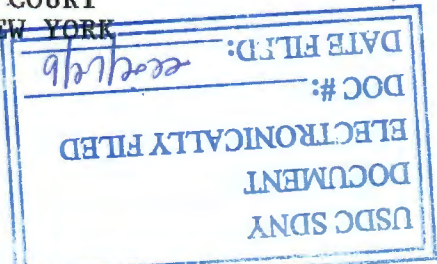 COURT
EW YORK
USDC SDNY
DOCUMENT
ELECTRONICALLY FILED
DOC #:
DATE FILED: